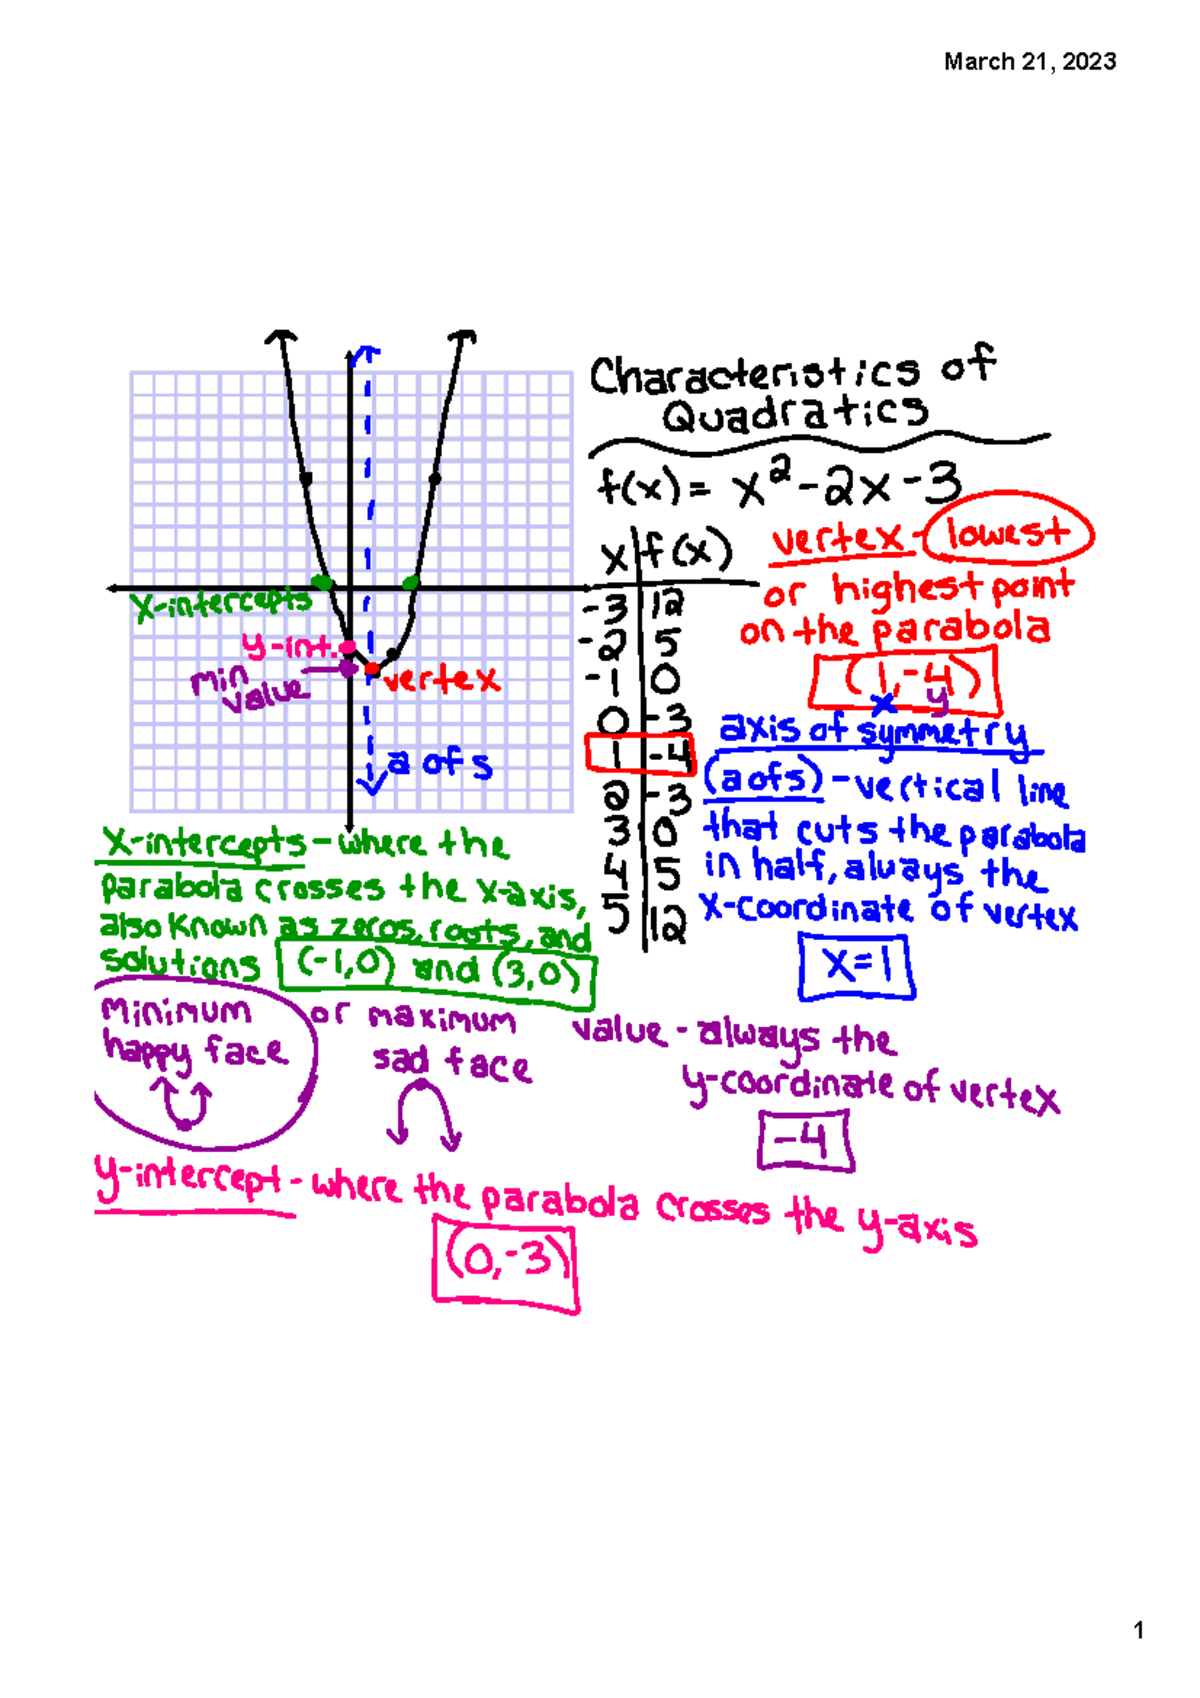 March 21, 2023
Characteristics of
Quadratics
f(x) = x² - 2x - 3
x | f(x)
-3 | 12
-2 | 5
-1 | 0
0 | -3
1 | -4
2 | -3
3 | 0
5
5 | 12
vertex - lowest
or highest point
on the parabola
(1, -4)
x y
axis of symmetry
(a of s) - vertical line
that cuts the parabola
in half, always the
x-coordinate of vertex
x=1
x-intercepts
y-int.
min
value
vertex
a of s
x-intercepts - where the
parabola crosses the x-axis,
also known as zeros, roots, and
solutions (-1,0) and (3,0)
minimum or maximum value - always the
happy face sad face y-coordinate of vertex
-4
y-intercept - where the parabola crosses the y-axis
(0,-3)
1